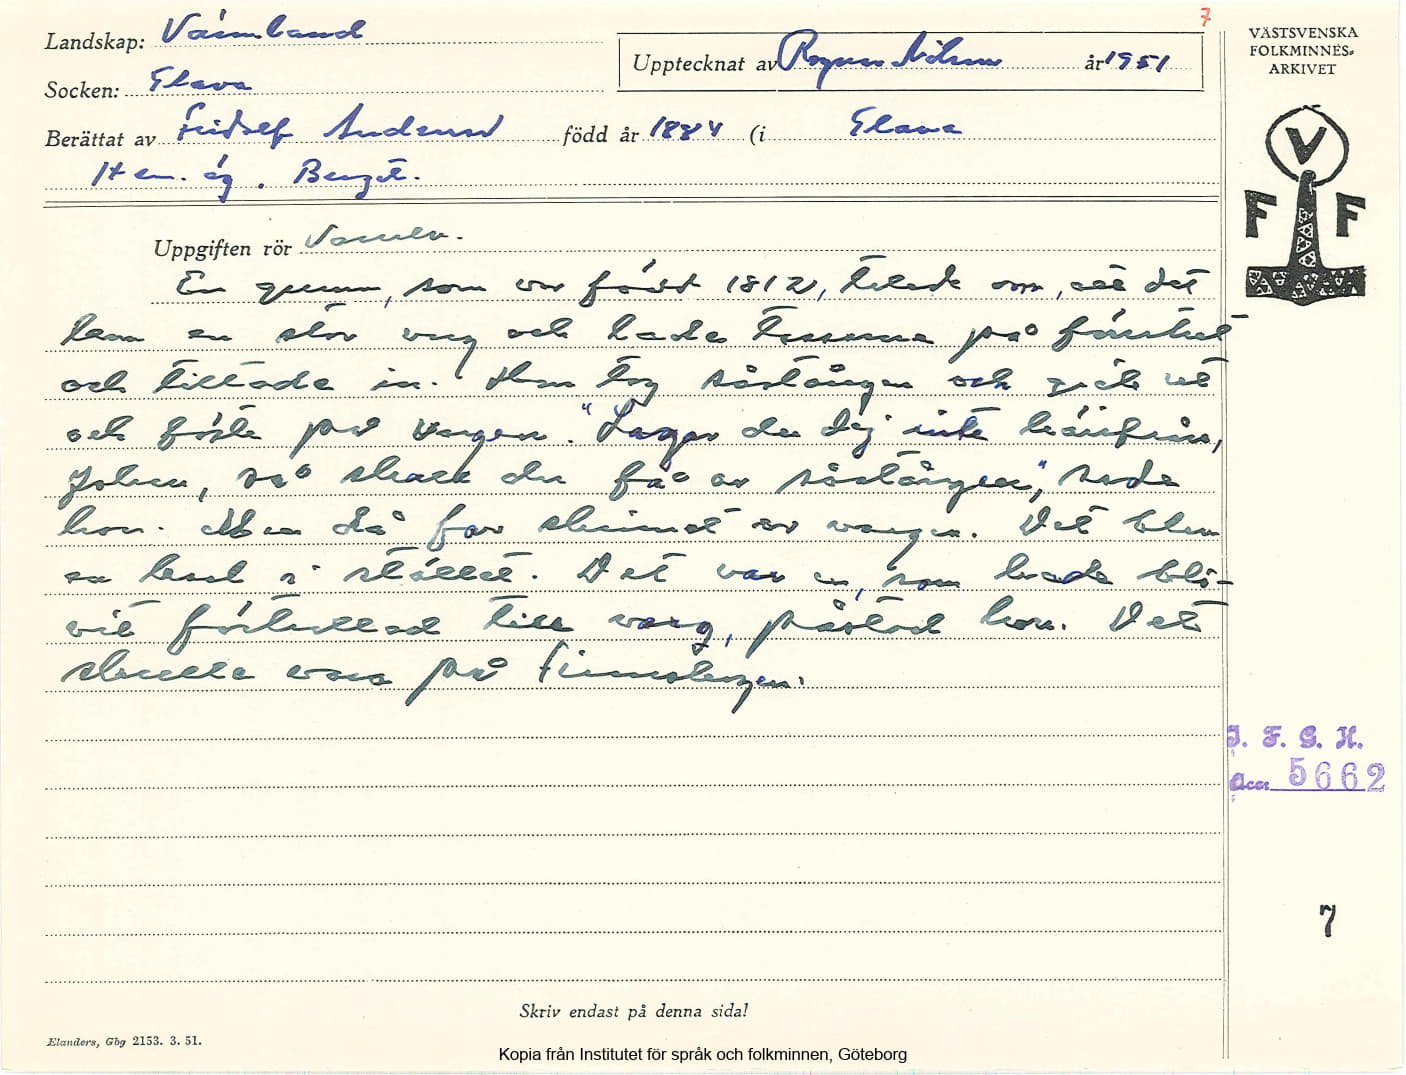 7
Landskap: Värmland
VÄSTSVENSKA
FOLKMINNES-
ARKIVET
Upptecknat av Ragnar Nilsson år 1951
Socken: Elava
Berättat av Fridolf Anderss född år 1884 (i Elava
Hem. äg. Berget.
V
F F
Uppgiften rör Varulv.
En gumma, som var född 1812, talade om, att det
kom en stor varg och lade tassarna på fönstret
och tittade in. Hon tog såstången och gick ut
och föste på vargen. "Lagar du dig inte härifrån,
Johan, så skall du få av såstången", sade
hon. Men då for skinnet av vargen. Det blev
en karl i stället. Det var en, som hade bli-
vit förtrollad till varg, påstod hon. Det
skulle vara på Finnskogen.
I. F. G. H.
Acc. 5662
7
Skriv endast på denna sida!
Elanders, Gbg 2153. 3. 51.
Kopia från Institutet för språk och folkminnen, Göteborg